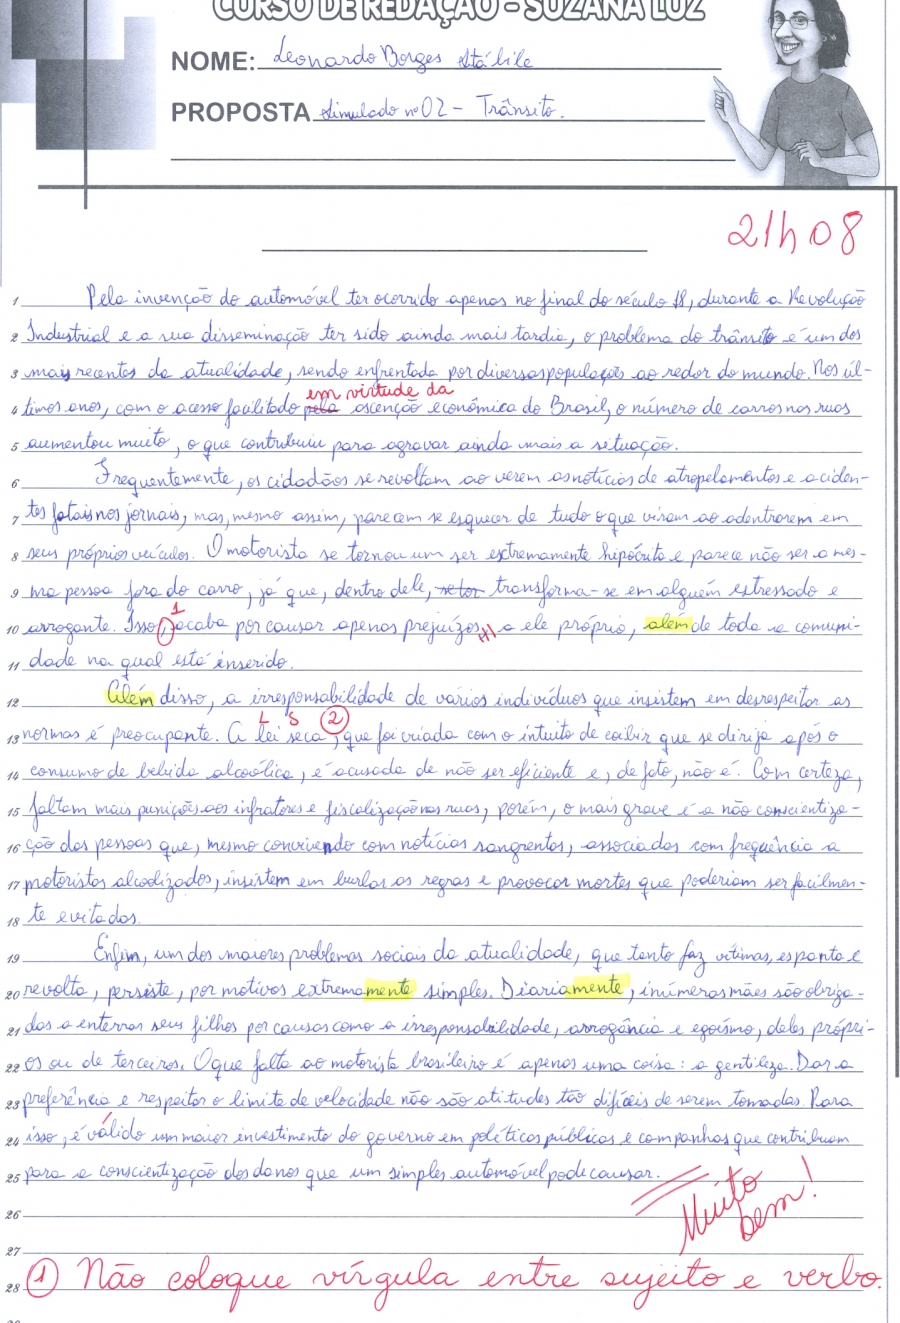 CURSO DE REDAÇÃO - SUZANA LUZ
NOME: Leonardo Borges Stábile
PROPOSTA Simulado nº 02 - Trânsito.
21h08
1 Pela invenção do automóvel ter ocorrido apenas no final do século 18, durante a Revolução
2 Industrial e a sua disseminação ter sido ainda mais tardia, o problema do trânsito é um dos
3 mais recentes da atualidade, sendo enfrentada por diversas populações ao redor do mundo. Nos úl-
em virtude da
4 timos anos, com o acesso facilitado pela ascenção econômica do Brasil, o número de carros nas ruas
5 aumentou muito, o que contribuiu para agravar ainda mais a situação.
6 Frequentemente, os cidadãos se revoltam ao verem as notícias de atropelamentos e aciden-
7 tes fatais nos jornais, mas, mesmo assim, parecem se esquecer de tudo o que viram ao adentrarem em
8 seus próprios veículos. O motorista se tornou um ser extremamente hipócrita e parece não ser a mes-
9 ma pessoa fora do carro, já que, dentro dele, transforma-se em alguém estressado e
1
10 arrogante. Isso, acaba por causar apenas prejuízos a ele próprio, além de toda a comuni-
11 dade na qual está inserido.
12 Além disso, a irresponsabilidade de vários indivíduos que insistem em desrespeitar as
L S 2
13 normas é preocupante. A lei seca, que foi criada com o intuito de coibir que se dirija após o
14 consumo de bebida alcoólica, é acusada de não ser eficiente e, de fato, não é. Com certeza,
15 faltam mais punições aos infratores e fiscalização nas ruas, porém, o mais grave é a não conscientiza-
16 ção das pessoas que, mesmo convivendo com notícias sangrentas, associadas com frequência a
17 motoristas alcoolizados, insistem em burlar as regras e provocar mortes que poderiam ser facilmen-
18 te evitadas.
19 Enfim, um dos maiores problemas sociais da atualidade, que tanto faz vítimas, espanta e
20 revolta, persiste, por motivos extremamente simples. Diariamente, inúmeras mães são obriga-
21 das a enterrar seus filhos por causas como a irresponsabilidade, arrogância e egoísmo, deles própri-
22 os ou de terceiros. O que falta ao motorista brasileiro é apenas uma coisa: a gentileza. Dar a
23 preferência e respeitar o limite de velocidade não são atitudes tão difíceis de serem tomadas. Para
24 isso, é válido um maior investimento do governo em políticas públicas e campanhas que contribuam
25 para a conscientização dos danos que um simples automóvel pode causar.
Muito bem!
26
27
28 1 Não coloque vírgula entre sujeito e verbo.